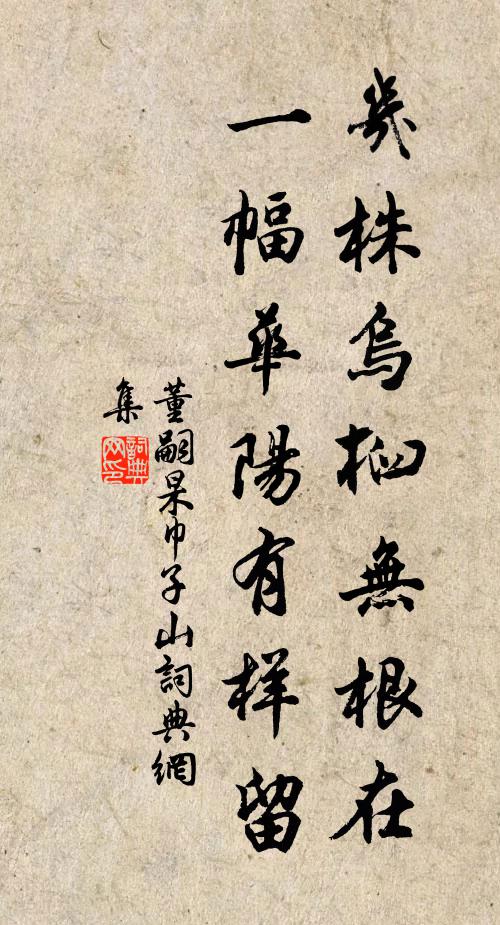 幾株烏桕無根在
一幅華陽有样留
董嗣杲巾子山詞典網
集
詞典
网印